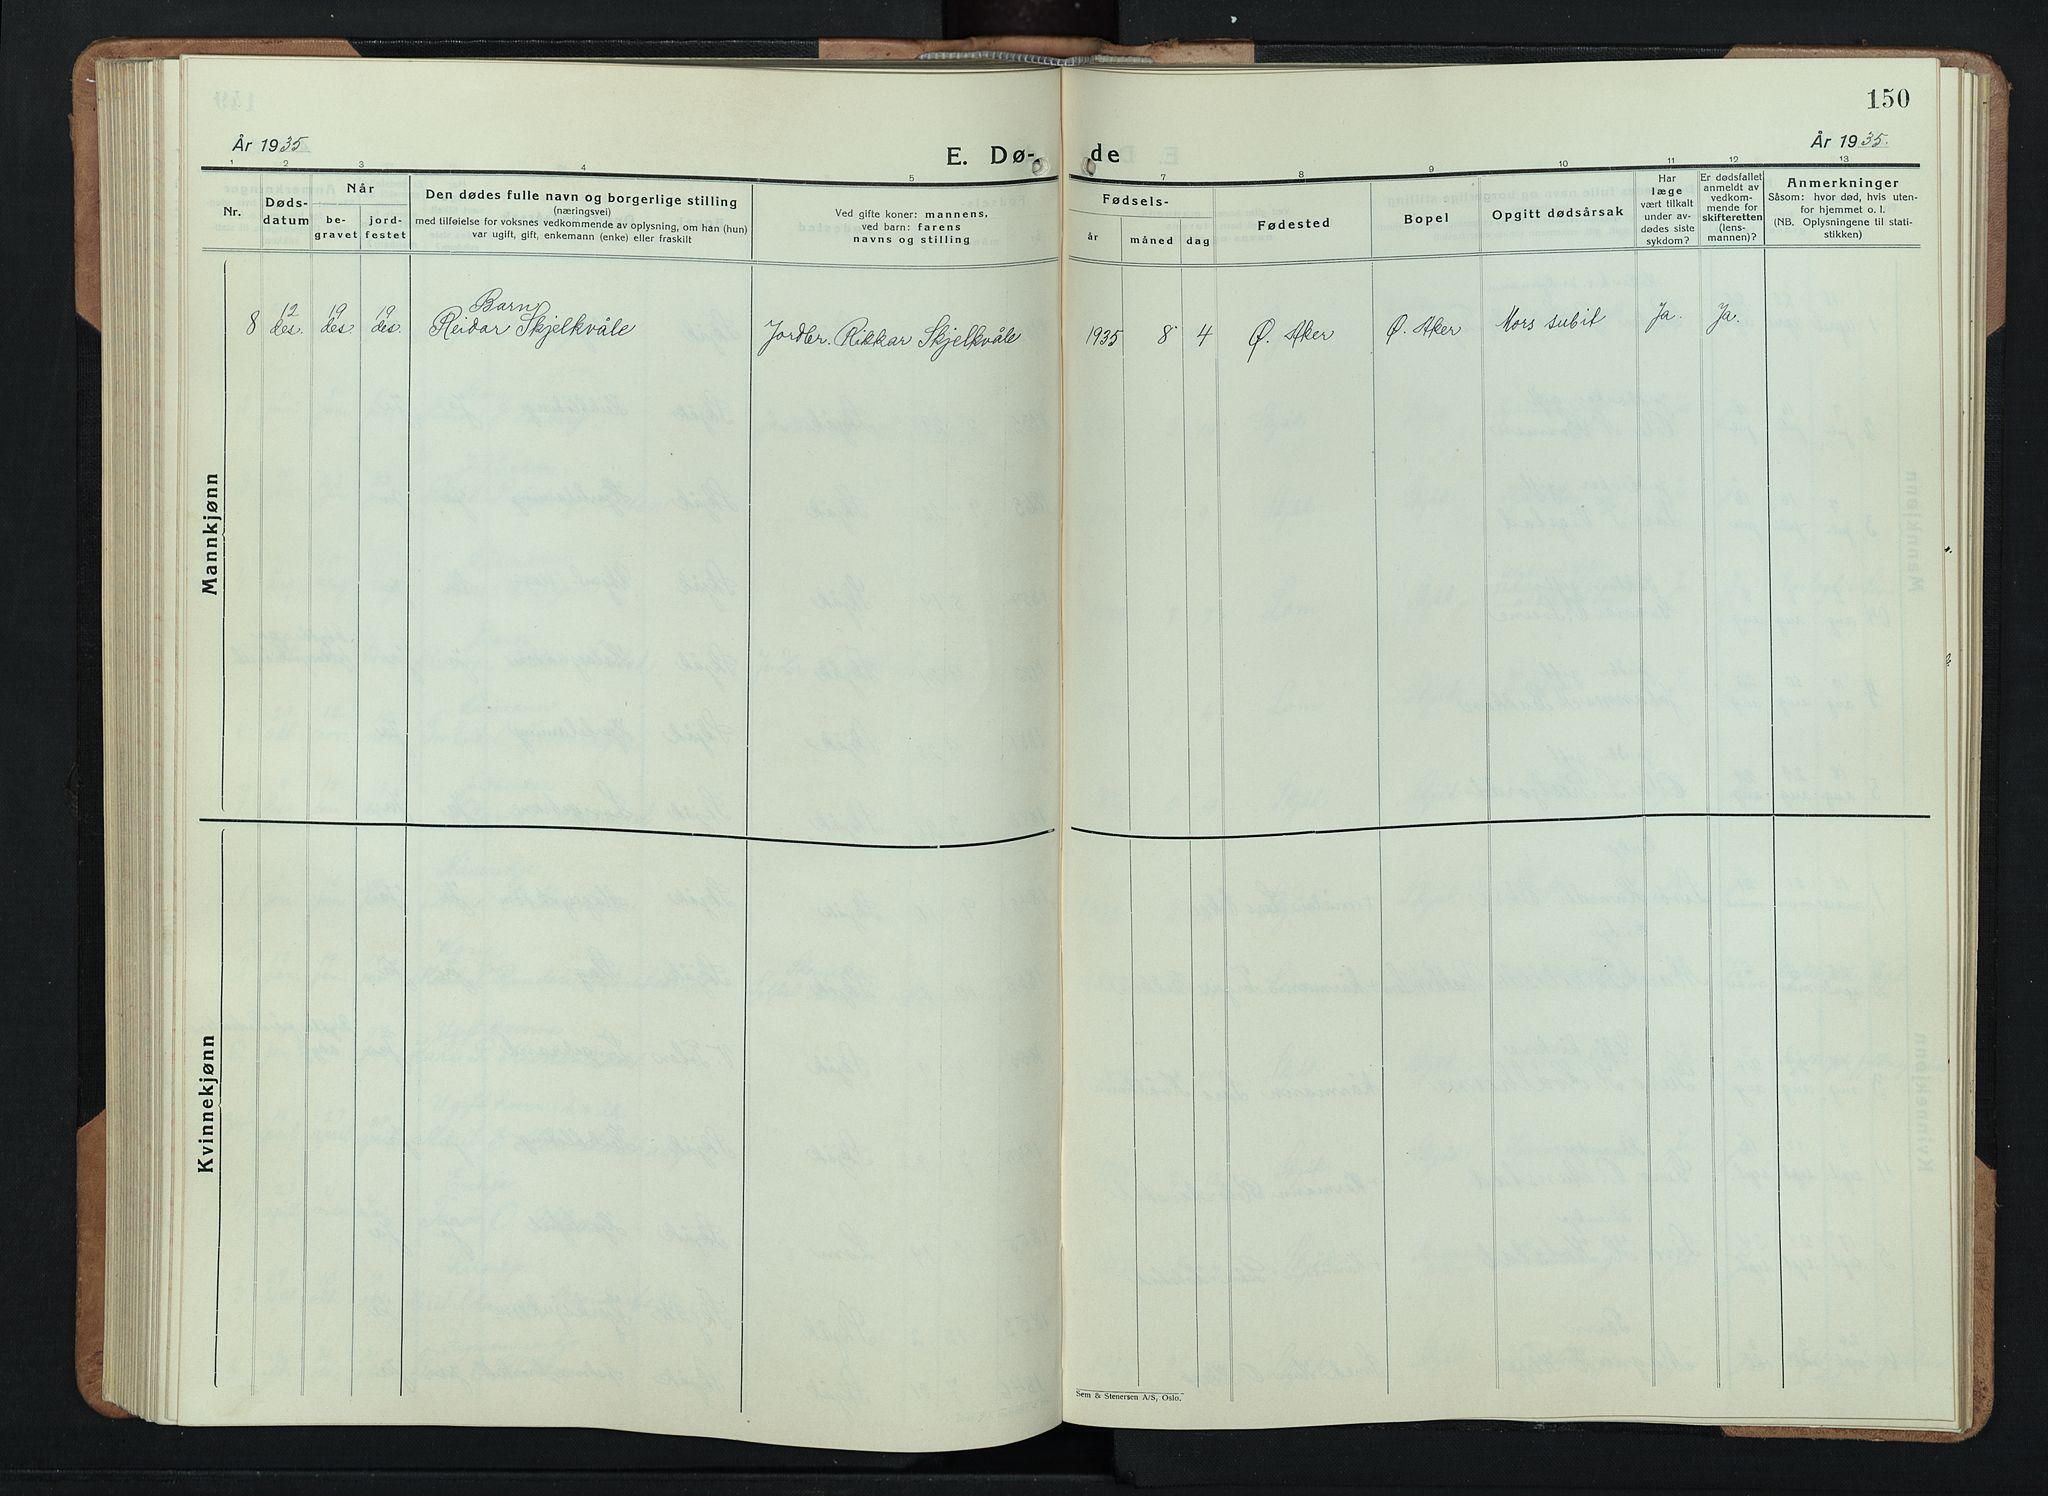 150
År 1935
År 1935.
E. Dø-
de
1 2 3 4 5 7 8 9 10 11 12 13
Nr.
Døds-
datum
Når
be-
gravet
jord-
festet
Den dødes fulle navn og borgerlige stilling
(næringsvei)
med tilføielse for voksnes vedkommende av oplysning, om han (hun)
var ugift, gift, enkemann (enke) eller fraskilt
Ved gifte koner: mannens,
ved barn: farens
navns og stilling
Fødsels-
år
måned
dag
Fødested
Bopel
Opgitt dødsårsak
Har
læge
vært tilkalt
under av-
dødes siste
sykdom?
Er dødsfallet
anmeldt av
vedkom-
mende for
skifteretten
(lens-
mannen)?
Anmerkninger
Såsom: hvor død, hvis uten-
for hjemmet o. l.
(NB. Oplysningene til stati-
stikken)
Mannkjønn
Barn
8 12 des. 19 des. 19 des. Reidar Skjelkvåle Jordbr. Rikkar Skjelkvåle 1935 8 4 Ø. Aker Ø. Aker Mors subit Ja. Ja.
Kvinnekjønn
Sem & Stenersen A/S, Oslo.